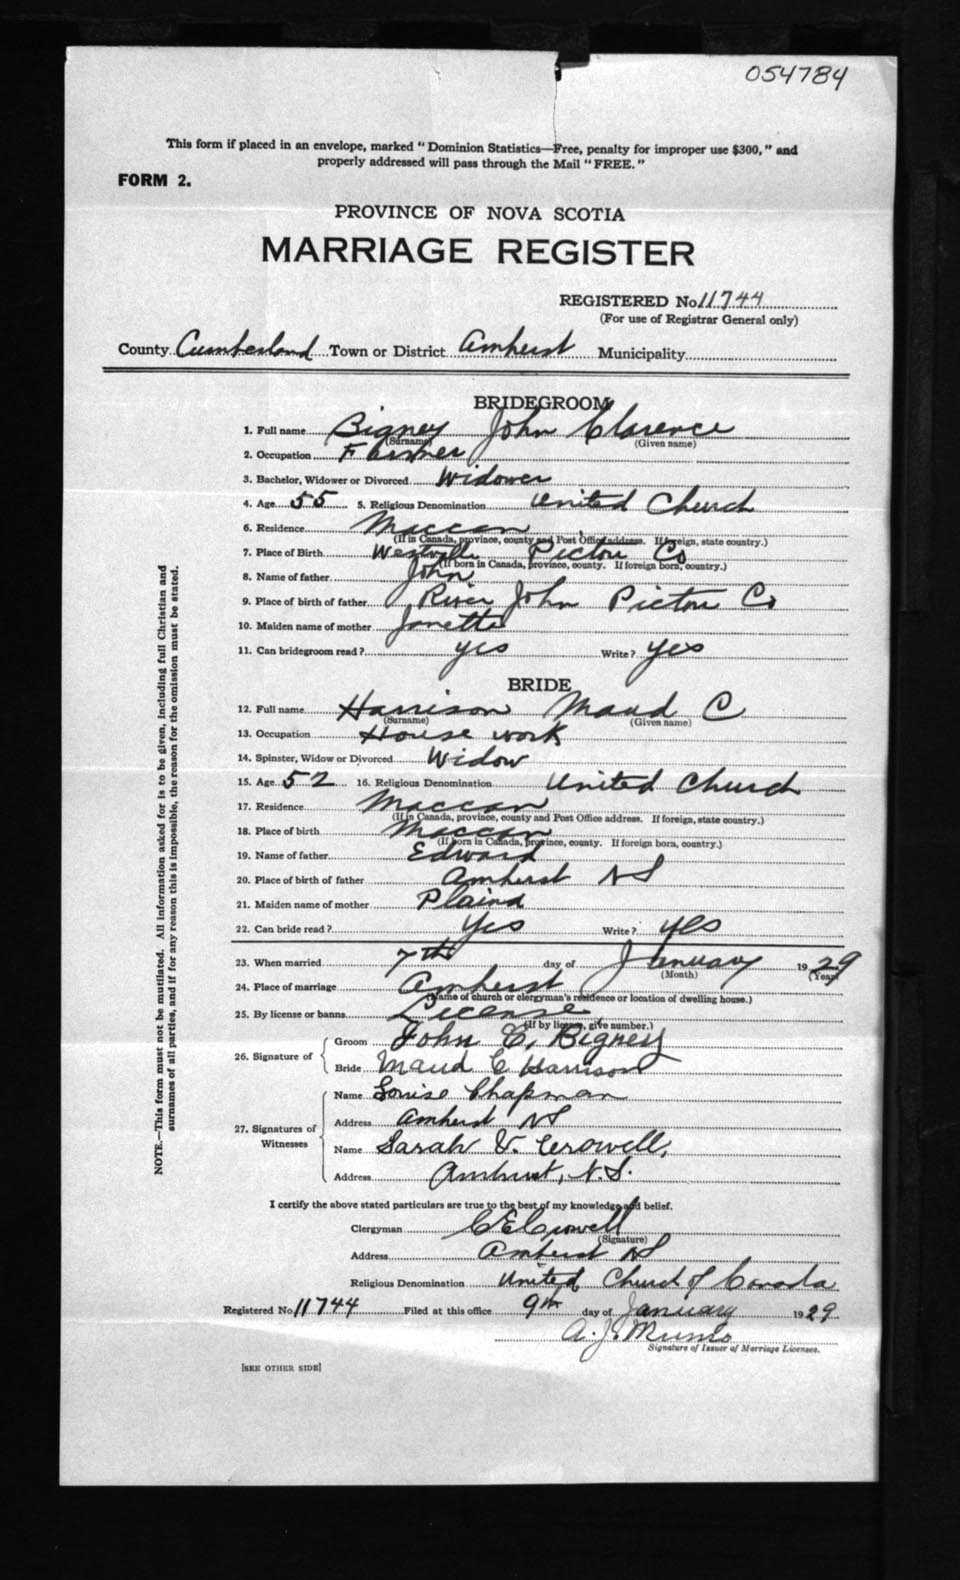 054784
This form if placed in an envelope, marked "Dominion Statistics—Free, penalty for improper use $300," and
properly addressed will pass through the Mail "FREE."
FORM 2.
PROVINCE OF NOVA SCOTIA
MARRIAGE REGISTER
REGISTERED No. 11744
(For use of Registrar General only)
County Cumberland Town or District Amherst Municipality
BRIDEGROOM
1. Full name Bigney John Clarence
(Surname) (Given name)
2. Occupation Farmer
3. Bachelor, Widower or Divorced Widower
4. Age 55 5. Religious Denomination United Church
6. Residence Maccan
(If in Canada, province, county and Post Office address. If foreign, state country.)
7. Place of Birth Westville Pictou Co
(If born in Canada, province, county. If foreign born, country.)
8. Name of father John
9. Place of birth of father River John Pictou Co
10. Maiden name of mother Janette
11. Can bridegroom read? yes Write? yes
BRIDE
12. Full name Harrison Maud C
(Surname) (Given name)
13. Occupation House work
14. Spinster, Widow or Divorced Widow
15. Age 52 16. Religious Denomination United Church
17. Residence Maccan
(If in Canada, province, county and Post Office address. If foreign, state country.)
18. Place of birth Maccan
(If born in Canada, province, county. If foreign born, country.)
19. Name of father Edward
20. Place of birth of father Amherst NS
21. Maiden name of mother
22. Can bride read? Yes Write? yes
23. When married 7th day of January 1929
(Month) (Year)
24. Place of marriage Amherst
(Name of church or clergyman's residence or location of dwelling house.)
25. By license or banns License
(If by license, give number.)
26. Signature of
Groom John C. Bigney
Bride Maud C Harrison
27. Signatures of Witnesses
Name Louise Chapman
Address Amherst NS
Name Sarah V. Crowell,
Address Amherst, N.S.
I certify the above stated particulars are true to the best of my knowledge and belief.
Clergyman C E Crowell
(Signature)
Address Amherst NS
Religious Denomination United Church of Canada
Registered No. 11744 Filed at this office 9th day of January 1929
A. J. Munro
Signature of Issuer of Marriage Licenses.
[SEE OTHER SIDE]
NOTE.—This form must not be mutilated. All information asked for is to be given, including full Christian and
surnames of all parties, and if for any reason this is impossible, the reason for the omission must be stated.